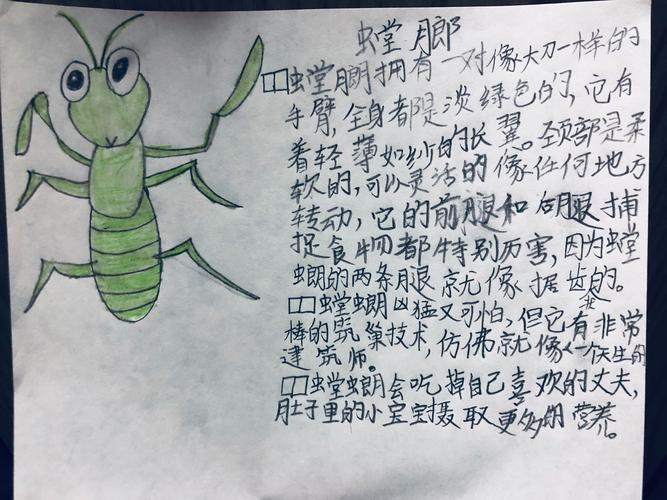 螳螂
□□螳螂拥有一对像大刀一样的
手臂，全身都是淡绿色的，它有
着轻薄如纱的长翼。颈部是柔
软的，可以灵活的像任何地方
转动，它的前腿和后腿捕
捉食物都特别厉害，因为螳
螂的两条腿就像据齿的。
□□螳螂凶猛又可怕，但它有非常
棒的筑巢技术，仿佛就像一个天生的
建筑师。
□□螳螂会吃掉自己喜欢的丈夫，
肚子里的小宝宝摄取更多的营养。